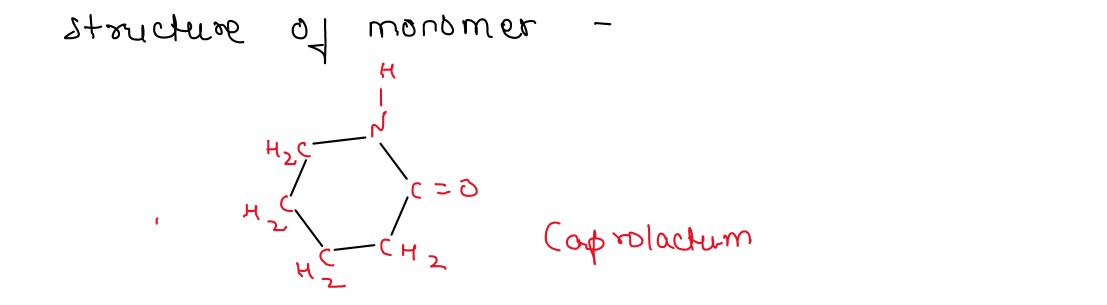 structure of monomer -
H
N
H2C
C=O
H2C
H2C
CH2
Caprolactum